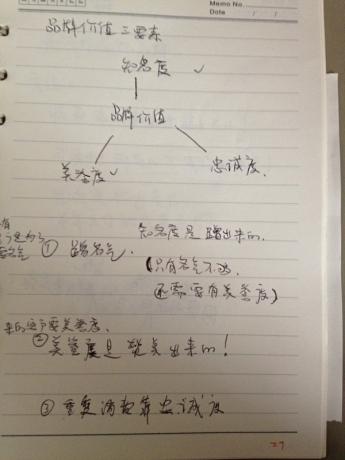 Memo No.
Date / /
品牌价值三要素
知名度 ✓
品牌价值
美誉度 ✓
忠诚度.
知名度是蹭出来的.
① 蹭名气.
(只有名气不够
还需要有美誉度)
② 美誉度是出来的!
③ 重复消费靠忠诚度
27